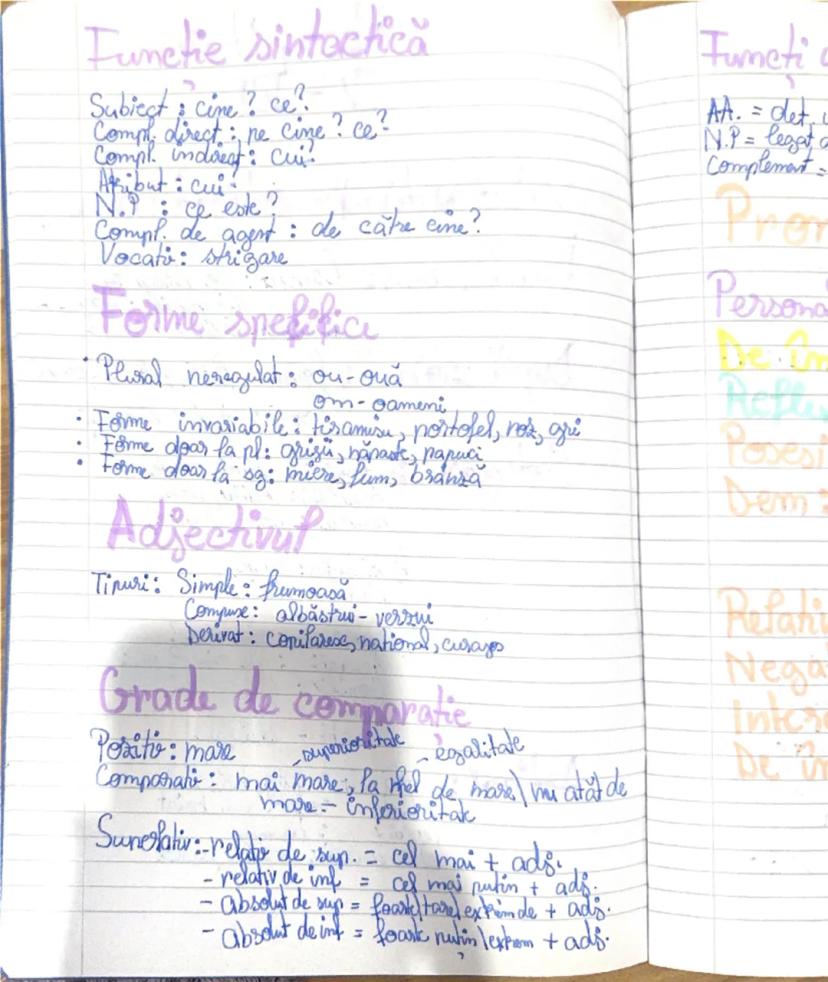 Funcție sintactică
Subiect : cine ? ce?
Compl. direct : pe cine ? ce?
Compl. indirect : cui?
Atribut : cui
N.P : ce este ?
Compl. de agent : de către cine?
Vocativ : strigare
Forme spefifice
• Plural neregulat : ou-ouă
om-oameni
• Forme invariabile : tiramisu, portofel, roz, gri
• Forme doar la pl : griji, năpaste, papuci
• Forme doar la sg : miere, fum, brânză
Adjectivul
Tipuri : Simple : frumoasă
Compuse : albăstrui-verzui
Derivat : copilaresc, national, curajos
Grade de comparație
Pozitiv : mare -superioritate -egalitate
Comparativ : mai mare, la fel de mare\ nu atât de
mare - inferioritate
Superlativ :-relativ de sup. = cel mai + adj.
- relativ de inf = cel mai puțin + adj.
- absolut de sup = foarte\tare\ extrem de + adj.
- absolut de inf = foarte puțin \extrem + adj.
Funcți
AA. = det.
N.P = legat
Complement =
Pron
Persona
De în
Refle
Posesi
Dem
Relativ
Nega
Inter
De în